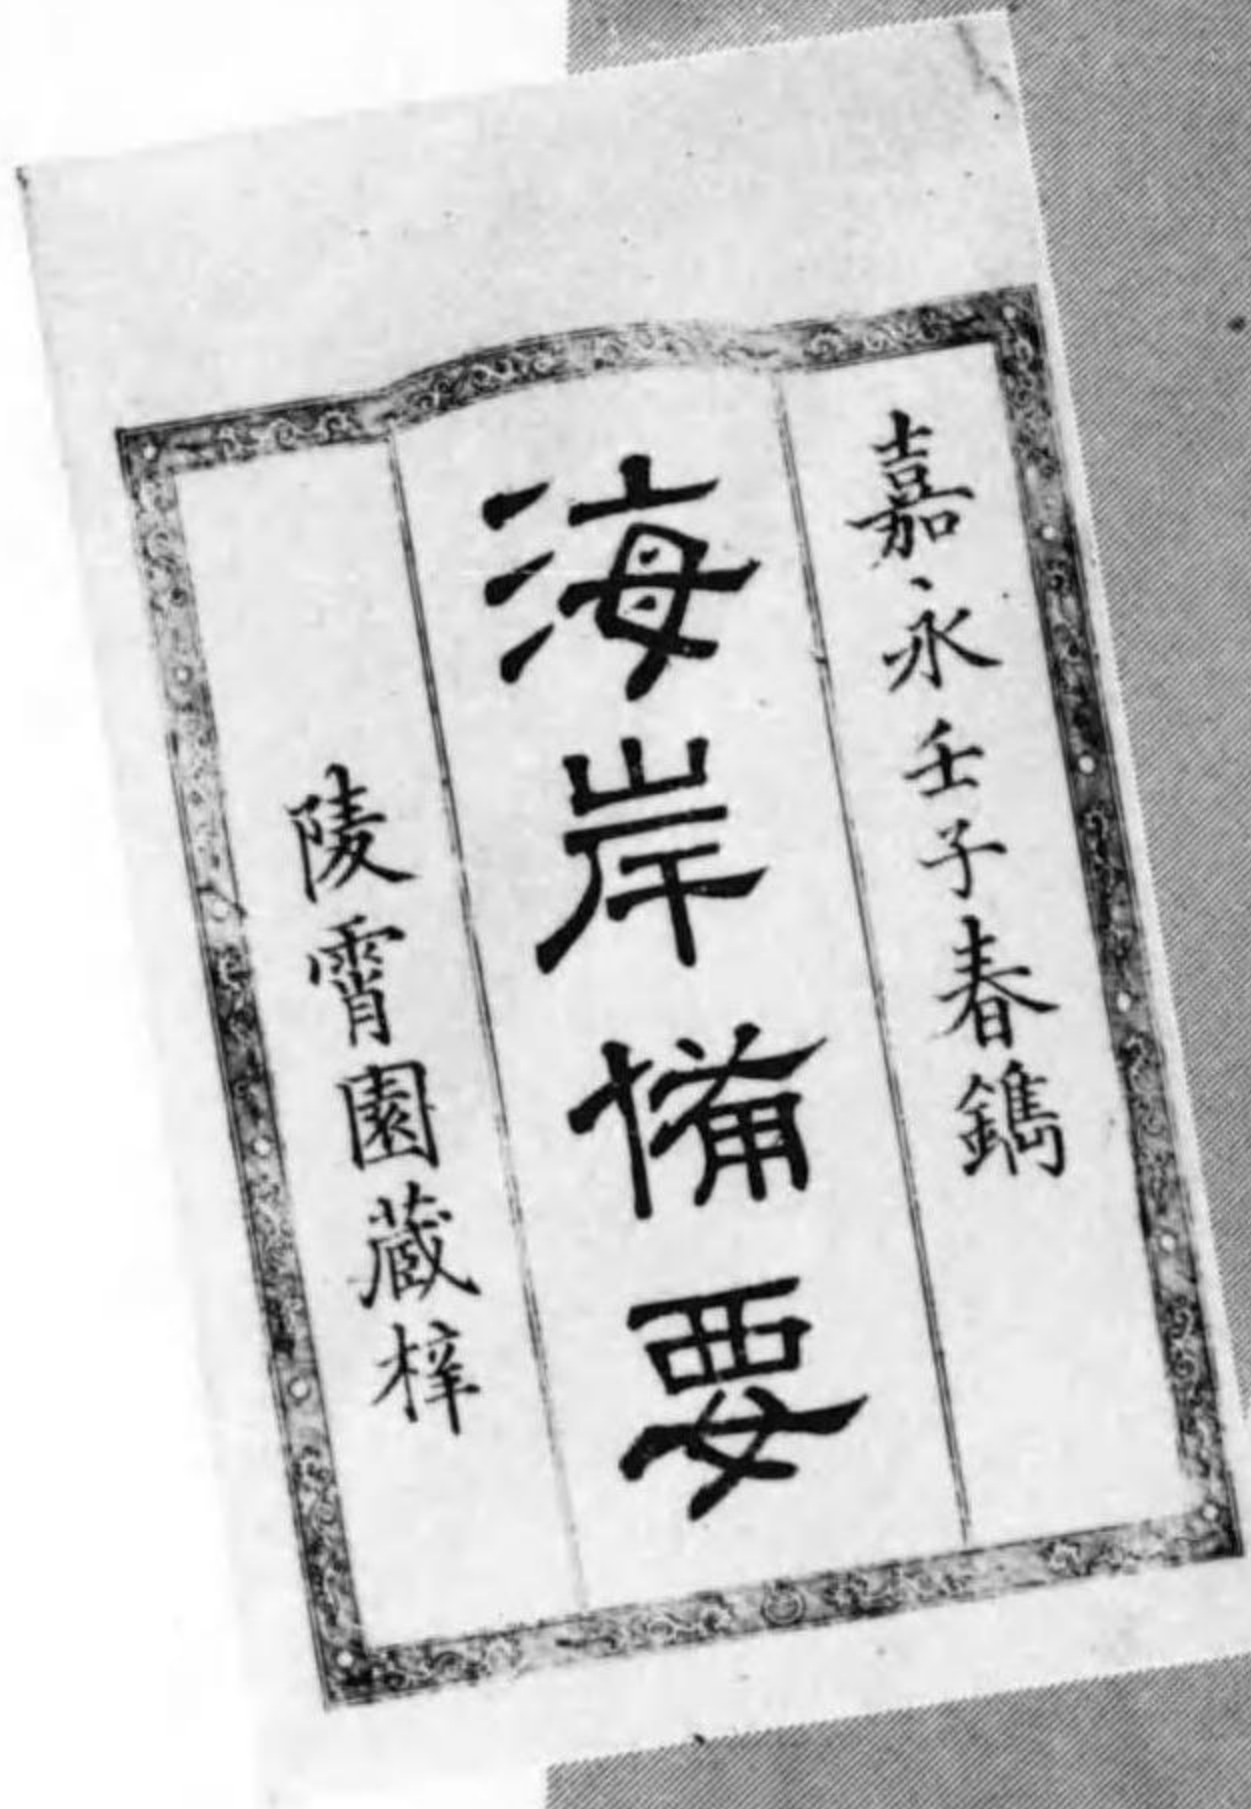 嘉永壬子春鐫
海岸備要
陵霄園蔵梓